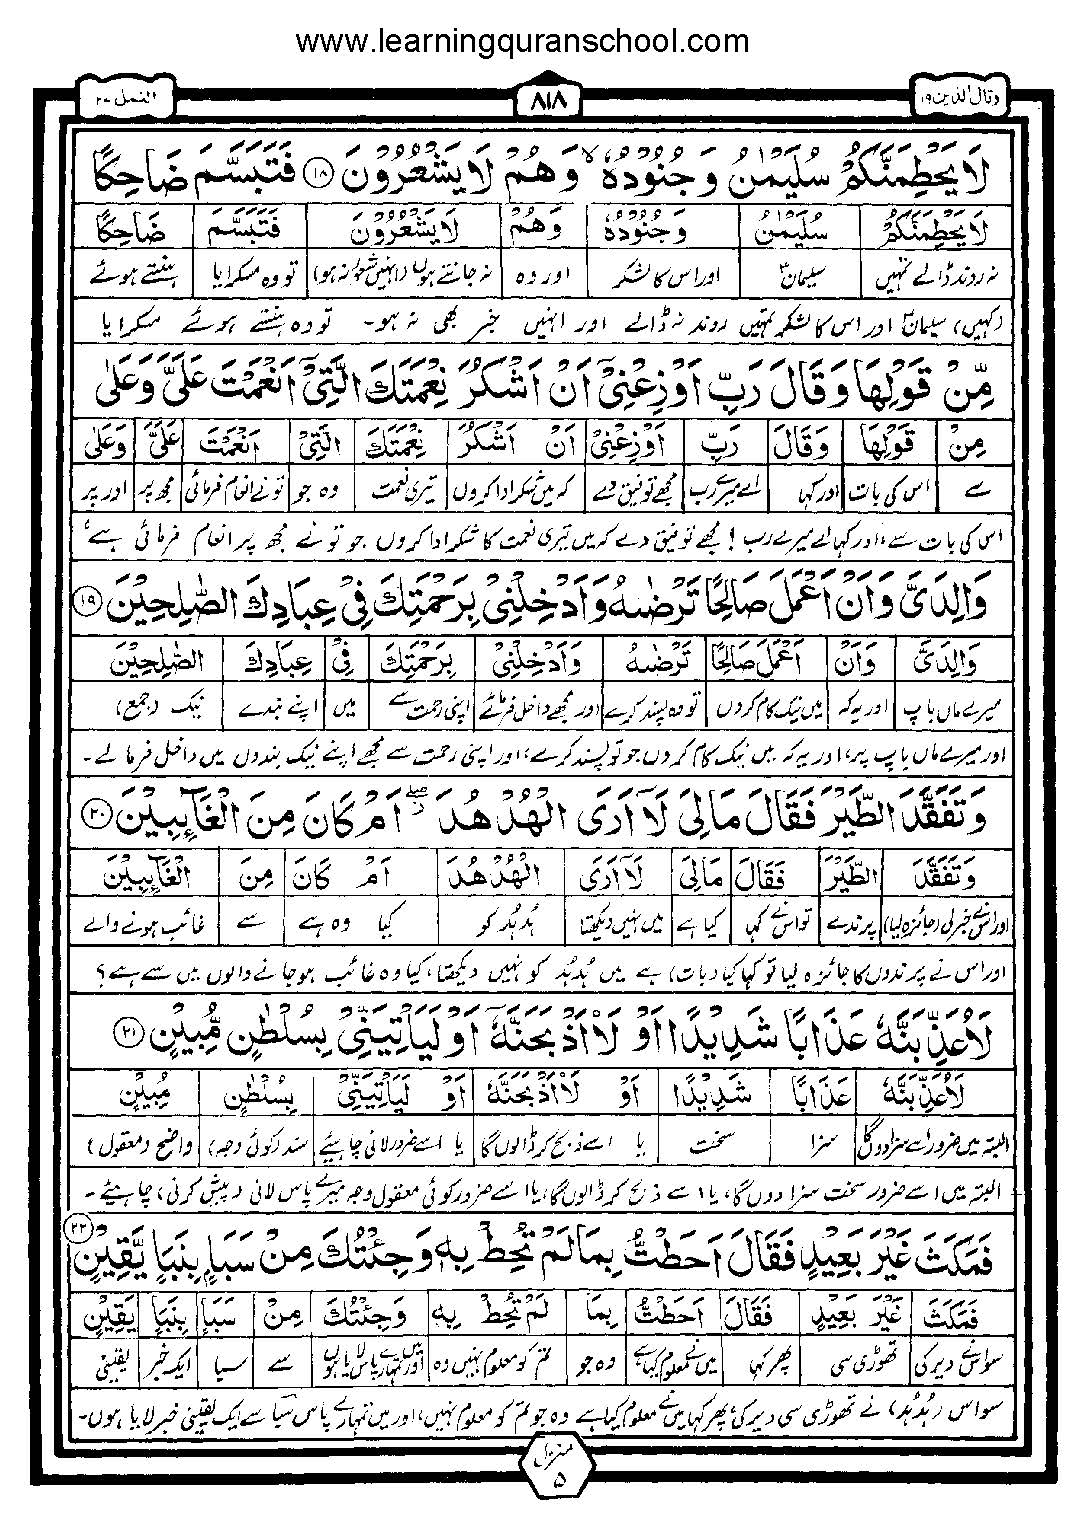 www.learningquranschool.com
وقال الذين ١٩
٨١٨
النمل ٢٧
لَا يَحْطِمَنَّكُمْ سُلَيْمٰنُ وَ جُنُوْدُهٗ ۙ وَهُمْ لَا يَشْعُرُوْنَ ١٨ فَتَبَسَّمَ ضَاحِكًا
لَا يَحْطِمَنَّكُمْ سُلَيْمٰنُ وَ جُنُوْدُهٗ وَهُمْ لَا يَشْعُرُوْنَ فَتَبَسَّمَ ضَاحِكًا
نہ روند ڈالے تمہیں سلیمانؑ اور اس کا لشکر اور وہ نہ جانتے ہوں (انہیں شعور نہ ہو) تو وہ مسکرایا ہنستے ہوئے
(کہیں) سلیمانؑ اور اس کا لشکر تمہیں روند نہ ڈالے اور انہیں خبر بھی نہ ہو۔ تو وہ ہنستے ہوئے مسکرایا
مِّنْ قَوْلِهَا وَقَالَ رَبِّ اَوْزِعْنِيْٓ اَنْ اَشْكُرَ نِعْمَتَكَ الَّتِيْٓ اَنْعَمْتَ عَلَيَّ وَعَلٰى
مِنْ قَوْلِهَا وَقَالَ رَبِّ اَوْزِعْنِيْٓ اَنْ اَشْكُرَ نِعْمَتَكَ الَّتِيْٓ اَنْعَمْتَ عَلَيَّ وَعَلٰى
سے اس کی بات اور کہا اے میرے رب مجھے توفیق دے کہ میں شکر ادا کروں تیری نعمت وہ جو تو نے انعام فرمائی مجھ پر اور پر
اس کی بات سے، اور کہا اے میرے رب! مجھے توفیق دے کہ میں تیری نعمت کا شکر ادا کروں جو تو نے مجھ پر انعام فرمائی ہے،
وَالِدَيَّ وَاَنْ اَعْمَلَ صَالِحًا تَرْضٰىهُ وَاَدْخِلْنِيْ بِرَحْمَتِكَ فِيْ عِبَادِكَ الصّٰلِحِيْنَ ١٩
وَالِدَيَّ وَاَنْ اَعْمَلَ صَالِحًا تَرْضٰىهُ وَاَدْخِلْنِيْ بِرَحْمَتِكَ فِيْ عِبَادِكَ الصّٰلِحِيْنَ
میرے ماں باپ اور یہ کہ میں نیک کام کروں تو وہ پسند کرے اور مجھے داخل فرمائے اپنی رحمت سے میں اپنے بندے نیک (جمع)
اور میرے ماں باپ پر، اور یہ کہ میں نیک کام کروں جو تو پسند کرے، اور اپنی رحمت سے مجھے اپنے نیک بندوں میں داخل فرما لے۔
وَتَفَقَّدَ الطَّيْرَ فَقَالَ مَالِيَ لَآ اَرَى الْهُدْهُدَ ۖ اَمْ كَانَ مِنَ الْغَآىِٕبِيْنَ ٢٠
وَتَفَقَّدَ الطَّيْرَ فَقَالَ مَالِيَ لَآ اَرَى الْهُدْهُدَ اَمْ كَانَ مِنَ الْغَآىِٕبِيْنَ
اور اس نے خبر لی (جائزہ لیا) پرندے تو اس نے کہا کیا ہے میں نہیں دیکھتا ہُدہُد کو کیا وہ ہے سے غائب ہونے والے
اور اس نے پرندوں کا جائزہ لیا تو کہا کیا (بات) ہے میں ہُدہُد کو نہیں دیکھتا، کیا وہ غائب ہو جانے والوں میں سے ہے؟
لَاُعَذِّبَنَّهٗ عَذَابًا شَدِيْدًا اَوْ لَاَاذْبَحَنَّهٗٓ اَوْ لَيَاْتِيَنِّيْ بِسُلْطٰنٍ مُّبِيْنٍ ٢١
لَاُعَذِّبَنَّهٗ عَذَابًا شَدِيْدًا اَوْ لَاَاذْبَحَنَّهٗٓ اَوْ لَيَاْتِيَنِّيْ بِسُلْطٰنٍ مُبِيْنٍ
البتہ میں ضرور اسے سزا دوں گا سزا سخت یا اسے ذبح کر ڈالوں گا یا اسے ضرور لانی چاہیئے سند (کوئی وجہ) واضح (معقول)
البتہ میں اسے ضرور سخت سزا دوں گا، یا اسے ذبح کر ڈالوں گا، یا اسے ضرور کوئی معقول وجہ میرے پاس لانی (پیش کرنی) چاہیئے۔
فَمَكَثَ غَيْرَ بَعِيْدٍ فَقَالَ اَحَطْتُّ بِمَا لَمْ تُحِطْ بِهٖ وَجِئْتُكَ مِنْ سَبَاٍۭ بِنَبَاٍ يَّقِيْنٍ ٢٢
فَمَكَثَ غَيْرَ بَعِيْدٍ فَقَالَ اَحَطْتُّ بِمَا لَمْ تُحِطْ بِهٖ وَجِئْتُكَ مِنْ سَبَاٍ بِنَبَاٍ يَقِيْنٍ
سو اس نے دیر کی تھوڑی سی پھر کہا میں نے معلوم کیا ہے وہ جو تم کو معلوم نہیں وہ اور میں تمہارے پاس لایا ہوں سے سبا ایک خبر یقینی
سو اس (ہُدہُد) نے تھوڑی سی دیر کی، پھر کہا میں نے معلوم کیا ہے وہ جو تم کو معلوم نہیں، اور میں تمہارے پاس سبا سے ایک یقینی خبر لایا ہوں۔
منزل
۵